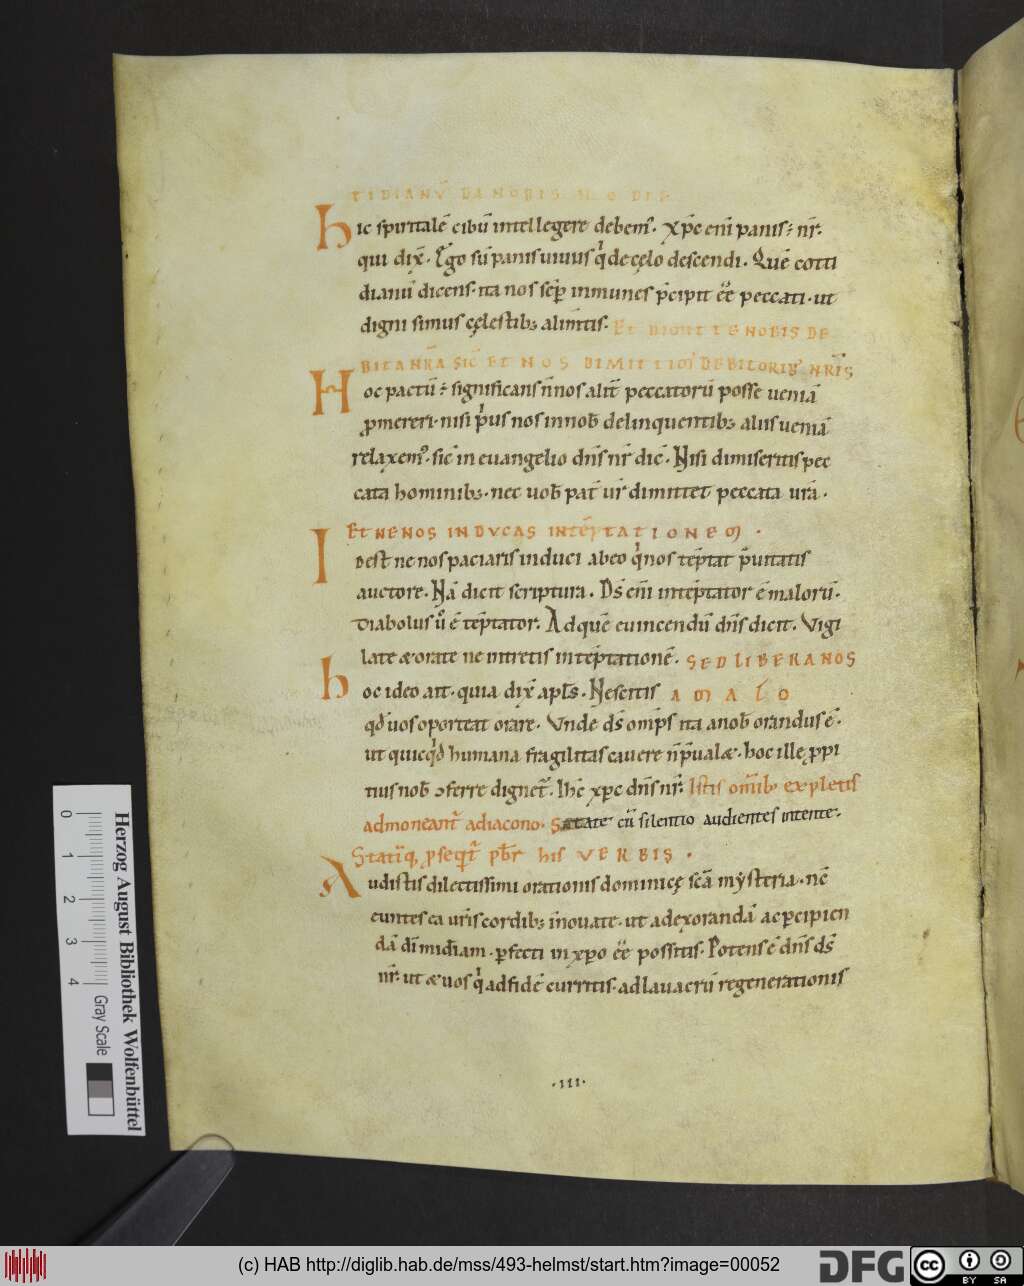 TIDIANŪ DA NOBIS HODIE
Hic spiritalē cibū intellegere debem᷒. xp̄c eni᷒ panis ÷ nr̄.
qui dix̄. Ego sū panis uiuus q̇ de cęlo descendi. Quē cotti
dianū dicens. ita nos sēp inmunes p̄cipit eē peccati. ut
digni simus cęlestib; alim̄tis. ET DIMITTE NOBIS DE
BITA NR̄A SIC̄ ET NOS DIMITTIM᷒ DEBITORIB᷒ NR̄IS
Hoc pactū ÷ significans n̄ nos alit̄ peccatorū posse ueniā
ꝓmereri. nisi p̄us nos in nob̄ delinquentib; aliis ueniā
relaxem᷒. sic̄ in euangelio dn̄s nr̄ dic̄. Nisi dimiseritis pec
cata hominib;. nec uob̄ pat̄ ur̄ dimittet peccata urā.
ET NE NOS INDVCAS INTĒPTATIONEM.
Id est ne nos paciaris induci ab eo q̇ nos tēptat p̄uitatis
auctore. Nā dicit scriptura. Ds̄ eni᷒ intēptator ē malorū.
Diabolus u᷒ ē tēptator. Ad quē euincendū dn̄s dicit. Vigi
late & orate ne intretis in tēptationē. SED LIBERA NOS
A MALO
Hoc ideo ait. quia dix̄ apl̄s. Nescitis
qđ uos oporteat orare. Vnde ds̄ omp̄s ita a nob̄ orandus ē.
ut quicq̇d humana fragilitas cauere n̄ p̄ual&. hoc ille ꝓpi
tius nob̄ ɔferre dignet̄. ih̄c xp̄c dn̄s nr̄. Istis om̄ib; expletis
admoneant̄ a diacono. State cū silentio audientes intente.
Statīq; ꝓseqit̄ pbr̄ his VERBIS.
Audistis dilectissimi orationis dominicę scā mysteria. nc̄
euntes ea uris̄ cordib; inouate. ut ad exorandā ac p̄cipien
dā dī mīdiam. ꝑfecti in xp̄o eē possitis. Potens ē dn̄s ds̄
nr̄. ut & uos q̇ ad fidē curritis. ad lauacrū regenerationis
.III.
0 1 2 3 4
Gray Scale
Herzog August Bibliothek Wolfenbüttel
(c) HAB http://diglib.hab.de/mss/493-helmst/start.htm?image=00052
DFG
cc BY SA